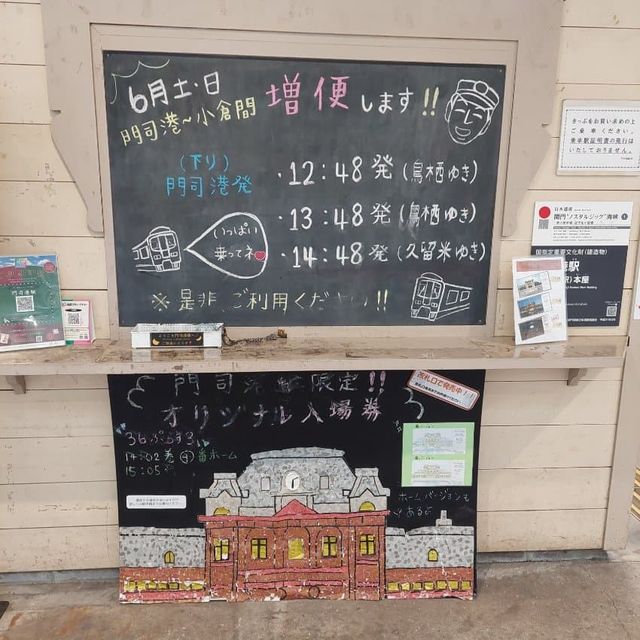 6月土・日
門司港~小倉間 増便します!!
(下り)
門司港発
・12:48発(鳥栖ゆき)
・13:48発(鳥栖ゆき)
・14:48発(久留米ゆき)
いっぱい
乗ってネ
※是非ご利用ください!!
きっぷをお買い求めの上
ご乗車ください。
乗車駅証明書の発行は
いたしておりません。
日本遺産
関門"ノスタルジック"海峡
国指定重要文化財(建造物)
本屋
門司港駅限定!!
オリジナル入場券
改札口で発売中!
36ぷらす3
14:02着 ④番ホーム
15:05発
ホームバージョンも
あるよ